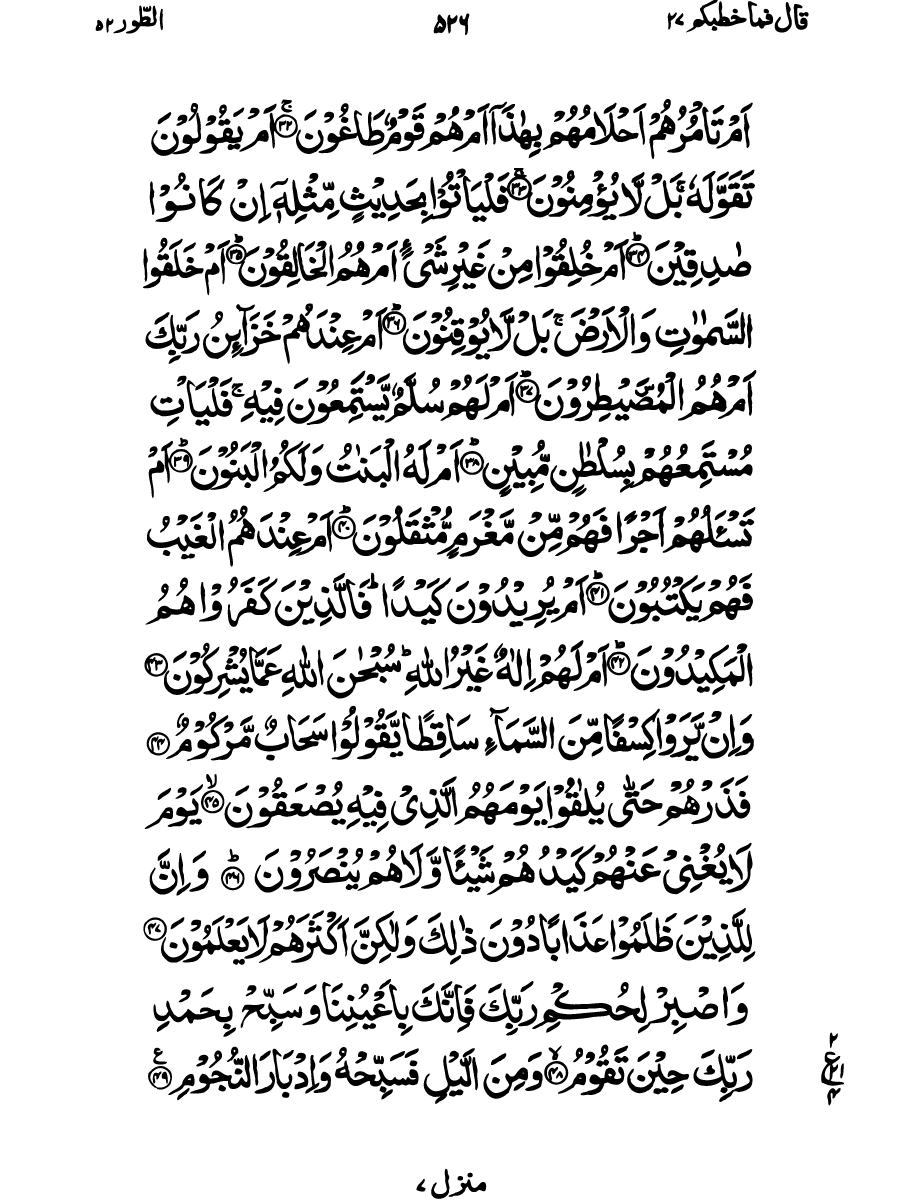 قال فما خطبكم ٢٧
٥٢٦
الطّور ٥٢
اَمْ تَاْمُرُهُمْ اَحْلَامُهُمْ بِهٰذَاۤ اَمْ هُمْ قَوْمٌ طَاغُوْنَ ۚ﴿۳۲﴾ اَمْ يَقُوْلُوْنَ
تَقَوَّلَهٗ ۚ بَلْ لَّا يُؤْمِنُوْنَ ۚ﴿۳۳﴾ فَلْيَاْتُوْا بِحَدِيْثٍ مِّثْلِهٖۤ اِنْ كَانُوْا
صٰدِقِيْنَ ؕ﴿۳۴﴾ اَمْ خُلِقُوْا مِنْ غَيْرِ شَیْءٍ اَمْ هُمُ الْخَالِقُوْنَ ؕ﴿۳۵﴾ اَمْ خَلَقُوا
السَّمٰوٰتِ وَالْاَرْضَ ۚ بَلْ لَّا يُوْقِنُوْنَ ؕ﴿۳۶﴾ اَمْ عِنْدَهُمْ خَزَآىِٕنُ رَبِّكَ
اَمْ هُمُ الْمُصَۜيْطِرُوْنَ ؕ﴿۳۷﴾ اَمْ لَهُمْ سُلَّمٌ يَّسْتَمِعُوْنَ فِيْهِ ۚ فَلْيَاْتِ
مُسْتَمِعُهُمْ بِسُلْطٰنٍ مُّبِيْنٍ ؕ﴿۳۸﴾ اَمْ لَهُ الْبَنٰتُ وَلَكُمُ الْبَنُوْنَ ؕ﴿۳۹﴾ اَمْ
تَسْـَٔلُهُمْ اَجْرًا فَهُمْ مِّنْ مَّغْرَمٍ مُّثْقَلُوْنَ ؕ﴿۴۰﴾ اَمْ عِنْدَهُمُ الْغَيْبُ
فَهُمْ يَكْتُبُوْنَ ؕ﴿۴۱﴾ اَمْ يُرِيْدُوْنَ كَيْدًا ؕ فَالَّذِيْنَ كَفَرُوْا هُمُ
الْمَكِيْدُوْنَ ؕ﴿۴۲﴾ اَمْ لَهُمْ اِلٰهٌ غَيْرُ اللّٰهِ ؕ سُبْحٰنَ اللّٰهِ عَمَّا يُشْرِكُوْنَ ﴿۴۳﴾
وَاِنْ يَّرَوْا كِسْفًا مِّنَ السَّمَآءِ سَاقِطًا يَّقُوْلُوْا سَحَابٌ مَّرْكُوْمٌ ﴿۴۴﴾
فَذَرْهُمْ حَتّٰى يُلٰقُوْا يَوْمَهُمُ الَّذِىْ فِيْهِ يُصْعَقُوْنَ ۙ﴿۴۵﴾ يَوْمَ
لَا يُغْنِىْ عَنْهُمْ كَيْدُهُمْ شَيْـًٔا وَّلَا هُمْ يُنْصَرُوْنَ ؕ﴿۴۶﴾ وَاِنَّ
لِلَّذِيْنَ ظَلَمُوْا عَذَابًا دُوْنَ ذٰلِكَ وَلٰكِنَّ اَكْثَرَهُمْ لَا يَعْلَمُوْنَ ﴿۴۷﴾
وَاصْبِرْ لِحُكْمِ رَبِّكَ فَاِنَّكَ بِاَعْيُنِنَا وَسَبِّحْ بِحَمْدِ
رَبِّكَ حِيْنَ تَقُوْمُ ۙ﴿۴۸﴾ وَمِنَ الَّيْلِ فَسَبِّحْهُ وَاِدْبَارَ النُّجُوْمِ ﴿۴۹﴾ ع
٢
ع ٢١
۴
منزل ٧